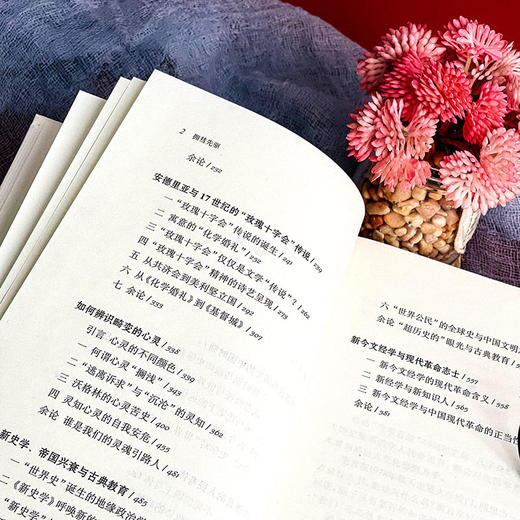 2 拥彗先驱
余论/232
安德里亚与17世纪的“玫瑰十字会”传说/239
一 “玫瑰十字会”传说的诞生/241
二 寓意的“化学婚礼”/251
三 “玫瑰十字会”仅仅是文学“传说”?/261
四 “玫瑰十字会”精神的诗艺呈现/275
五 从共济会到美利坚立国/293
六 从《化学婚礼》到《基督城》/307
七 余论/333
如何辨识畸变的心灵/338
引言 心灵的不同颜色/338
一 何谓心灵“搁浅”/358
二 “逃离诉求”与“沉沦”的灵知/365
三 沃格林的心灵苦史/400
四 灵知心灵的自我安危/422
余论 谁是我们的灵魂引路人/461
新史学、帝国兴衰与古典教育/481
一 “世界史”诞生的地缘政治学
二 《新史学》呼唤新的
“新史学”
六 “世界公民”的全球史与中国文明
余论 “超历史的”眼光与古典教育
新今文经学与现代革命志士/557
一 新今文经学的现代革命含义/558
二 新经学与新知识人/565
三 新今文经学与中国现代革命的正当性
余论/